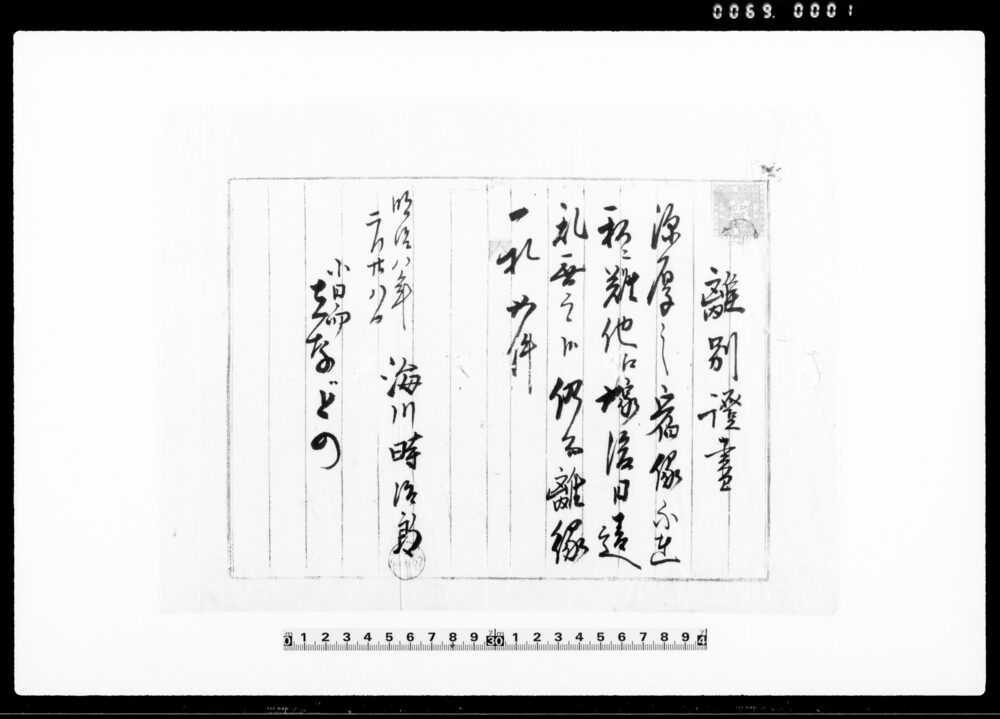 0069. 0001
離別證書
深厚之宿縁不在
私ニ雖他江嫁後日違
乱無之候仍而離縁
一札如件
明治八年
二月廿八日
海川時治郎
どの
0 1 2 3 4 5 6 7 8 9 30 1 2 3 4 5 6 7 8 9